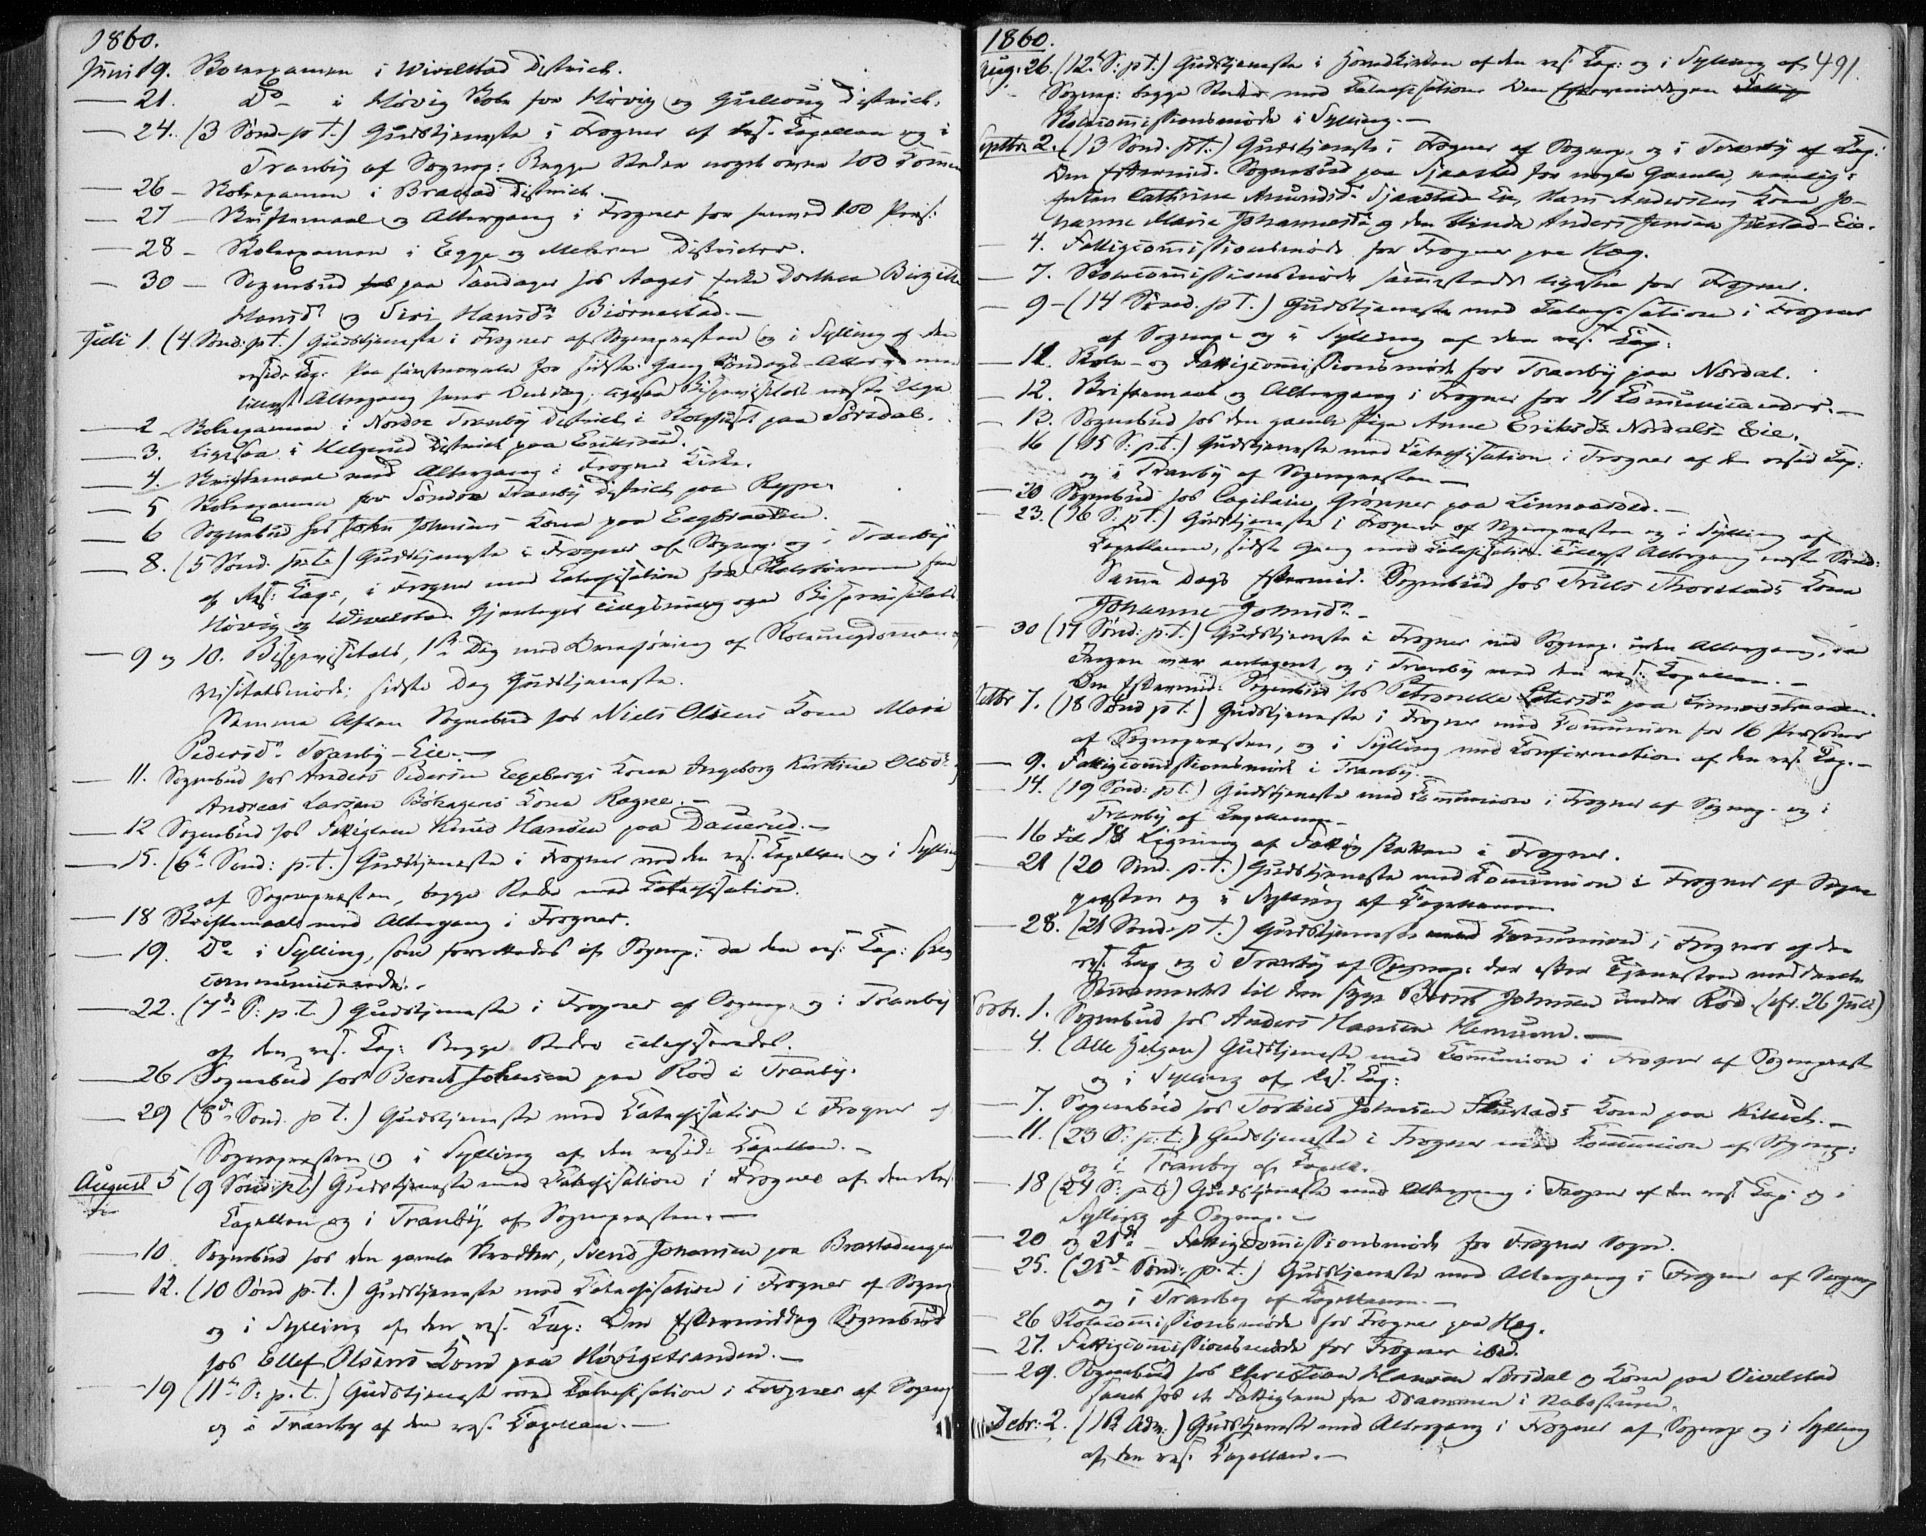 1860.
Juni 19. Skoleexamen i Wivelstad District.
— 21. Do i Høvig Skole for Høvig og Gulloug District.
— 24. (3 Sønd. p. t.) Gudstjeneste i Frogner af res. Capellan og i
Tranby af Sognep: Begge Steder noget over 100 Comm
— 26 – Skoleexamen i Bragad District.
— 27 – Skriftemaal og Altergang i Frogner for henved 100 Pers:
— 28 – Skoleexamen i Egge og Mehren Districter.
— 30 – Sognebud paa Landager hos Aages Enke Dorthea Birgitte
Hansd. og Siri Hansdr Biørnestad. —
Juli 1. (4 Sønd: p. t.) Gudstjeneste i Frogner af Sognepresten og i Sylling af den
resid. Cap. Paa første for sidste Gang Søndags-Alterg
tillyst Altergang hver Onsdag, ligesaa Bispevisitats næste Uge
— 2 Skoleexamen i Nordre Tranby District i Skolehuset paa Sørsdal.
— 3. Ligesaa i Helgerud District paa Eriksrud.
— 4. Skriftemaal med Altergang i Frogner Kirke.
— 5 Skoleexamen for Søndre Tranby District paa Rype
— 6 Sognebud hos John Johnsens Kone paa Eegbraathen.
— 8. (5 Sønd. p. t.) Gudstjeneste i Frogner af Sognep. og i Tranby
af Res: Cap:, i Frogner med Catechisation for Skolebørnene fra
Høvig og Wivelstad. Gjentagen Tillysning om Bispevisitats
— 9 og 10. Bispevisitats, 1ste Dag med Overhøring af Skoleungdommen,
Visitatsmøde; sidste Dag Gudstjeneste.
Samme Aften Sognebud hos Niels Olsens Kone Maria
Pedersdr. Tranby-Eie. —
— 11. Sognebud hos Anders Pedersen Eegebergs Kone Ingeborg Kirstine Olsdr,
Andreas Larsen Böhagens Kone Ragne. —
— 12 Sognebud hos Fattiglem Knud Hansen paa Dauerud. —
— 15. (6te Sønd: p. t.) Gudstjeneste i Frogner ved den res. Capellan og i Sylling
af Sognepresten, begge Steder med Catechisation.
— 18 Skriftemaal med Altergang i Frogner.
— 19. Do i Sylling, som forrettedes af Sognep: da den res: Cap: selv
communicerede. –
— 22. (7de S: p. t.) Gudstjeneste i Frogner af Sognep. og i Tranby
af den res. Cap: Begge Steder catechiseredes.
— 26 Sognebud hos Bernt Johnsen paa Rød i Tranby.
— 29 (8de Sønd. p. t.) Gudstjeneste med Catechisation i Frogner af
Sognepresten og i Sylling af den resid. Capellan. –
August 5 (9 Sønd. p. t.) Gudstjeneste med Catechisation i Frogner af den Res.
Capellan og i Tranby af Sognepresten. —
— 10. Sognebud hos den gamle Skrædder, Svend Johansen paa Bræstadengen
— 12. (10 Sønd p. t.) Gudstjeneste med Catechisation i Frogner af Sognep
og i Sylling af den res. Cap: Om Eftermiddag Sognebud
hos Ellef Olsens Kone paa Høvigstranden. —
— 19 (11te S: p. t.) Gudstjeneste med Catechisation i Frogner af Sognep
og i Tranby af den res. Capellan. —
1860.
491.
Aug: 26. (12te S: p. t.) Gudstjeneste i Hovedkirken af den res. Cap: og i Sylling af
Sognep: begge Steder med Catechisation. Om Eftermiddagen
Skolecommissionsmøde i Sylling. –
Septbr. 2. (13 Sønd. p. t.) Gudstjeneste i Frogner af Sognep. og i Tranby af Cap:
Om Eftermid. Sognebud paa Sjaastad for nogle Gamle, nemlig:
Enken Cathrine Amundsd. Sjaastad-Eie, Hans Andersens Kone Jo-
hanne Marie Johannesdr og den blinde Anders Jensen Juvstad-Eie.
— 4. Fattigcommissionsmøde for Frogner paa Hæg.
— 7. Skolecommissionsmøde sammesteds ligesaa for Frogner.
— 9 – (14 Sønd. p t.) Gudstjeneste med Catechisation i Frogner
af Sognep. og i Sylling af den res. Cap:
— 11. Skole- og Fattigcommissionsmøde for Tranby paa Nordal.
— 12. Skriftemaal og Altergang i Frogner for 21 Communicanter. —
— 13. Sognebud hos den gamle Pige Anne Eriksdr Nordals Eie.
— 16 (15 S. p. t.) Gudstjeneste med Catechisation i Frogner af den resid Cap:
og i Tranby af Sognepresten —
— 20 Sognebud hos Capitain Grønner paa Linnæstad. —
— 23. (16 S: p t.) Gudstjeneste i Frogner af Sognepresten og i Sylling af
Capellanen, sidste Gang med Catechisation. Tillyst Altergang næste Sønd:
Samme Dags Eftermid. Sognebud hos Truls Thorstads Kone
Johanne Johnsdr. –
— 30 (17 Sønd: p. t.) Gudstjeneste i Frogner ved Sognep. uden Altergang, da
Ingen var antegnet, og i Tranby ved den res. Capellan. –
Om Eftermid: Sognebud hos Petronelle Petersdr paa Linnesstranden.
Octbr 7. (18 Sønd p t.) Gudstjeneste i Frogner med Communion for 16 Personer
af Sognepresten, og i Sylling med Confirmation af den res. Cap. –
— 9. Fattigcommissionsmøde i Tranby. –
— 14. (19 Sønd: p t.) Gudstjeneste med Communion i Frogner af Sognep. og i
Tranby af Capellanen —
— 16 til 18 Ligning af Fattigskatten i Frogner.
— 21 (20 Sønd. p. t.) Gudstjeneste med Communion i Frogner af Sogne
presten og i Sylling af Capellanen
— 28. (21 Sønd. p t.) Gudstjeneste med Communion i Frogner af den
res. Cap og i Tranby af Sognep: der efter Tjenesten meddeelte
Sacramentet til den syge Bernt Johnsen under Rød (cfr. 26 Juli)
Novbr. 1. Sognebud hos Anders Hansen Hemsum. —
— 4. (Alle Helgen) Gudstjeneste med Communion i Frogner af Sognepresten
og i Sylling af Res. Cap:
— 7. Sognebud hos Torkild Johnsen Kone paa Killest. —
— 11. (23 S: p. t.) Gudstjeneste i Frogner med Communion af Sognep:
og i Tranby af Capell.
— 18 (24 S: p. t.) Gudstjeneste med Altergang i Frogner af den res. Cap. og i
Sylling af Sognep. –
— 20 og 21de – Fattigcommissionsmøde for Frogner Sogn.
— 25. (25de Sønd. p. t.) Gudstjeneste med Altergang i Frogner af Sognep
og i Tranby af Capellanen. —
— 26 Skolecommissionsmøde for Frogner paa Hæg.
— 27. Fattigcommissionsmøde for Frogner ibid.
— 29. Sognebud hos Christian Hansen Sørsdal og Kone paa Vivelstad
samt hos et Fattiglem fra Drammen i Nabostuen.
Decbr. 2. (1ste Adv:) Gudstjeneste med Altergang i Frogner af Sognep og i Sylling
af den res. Capellan. —